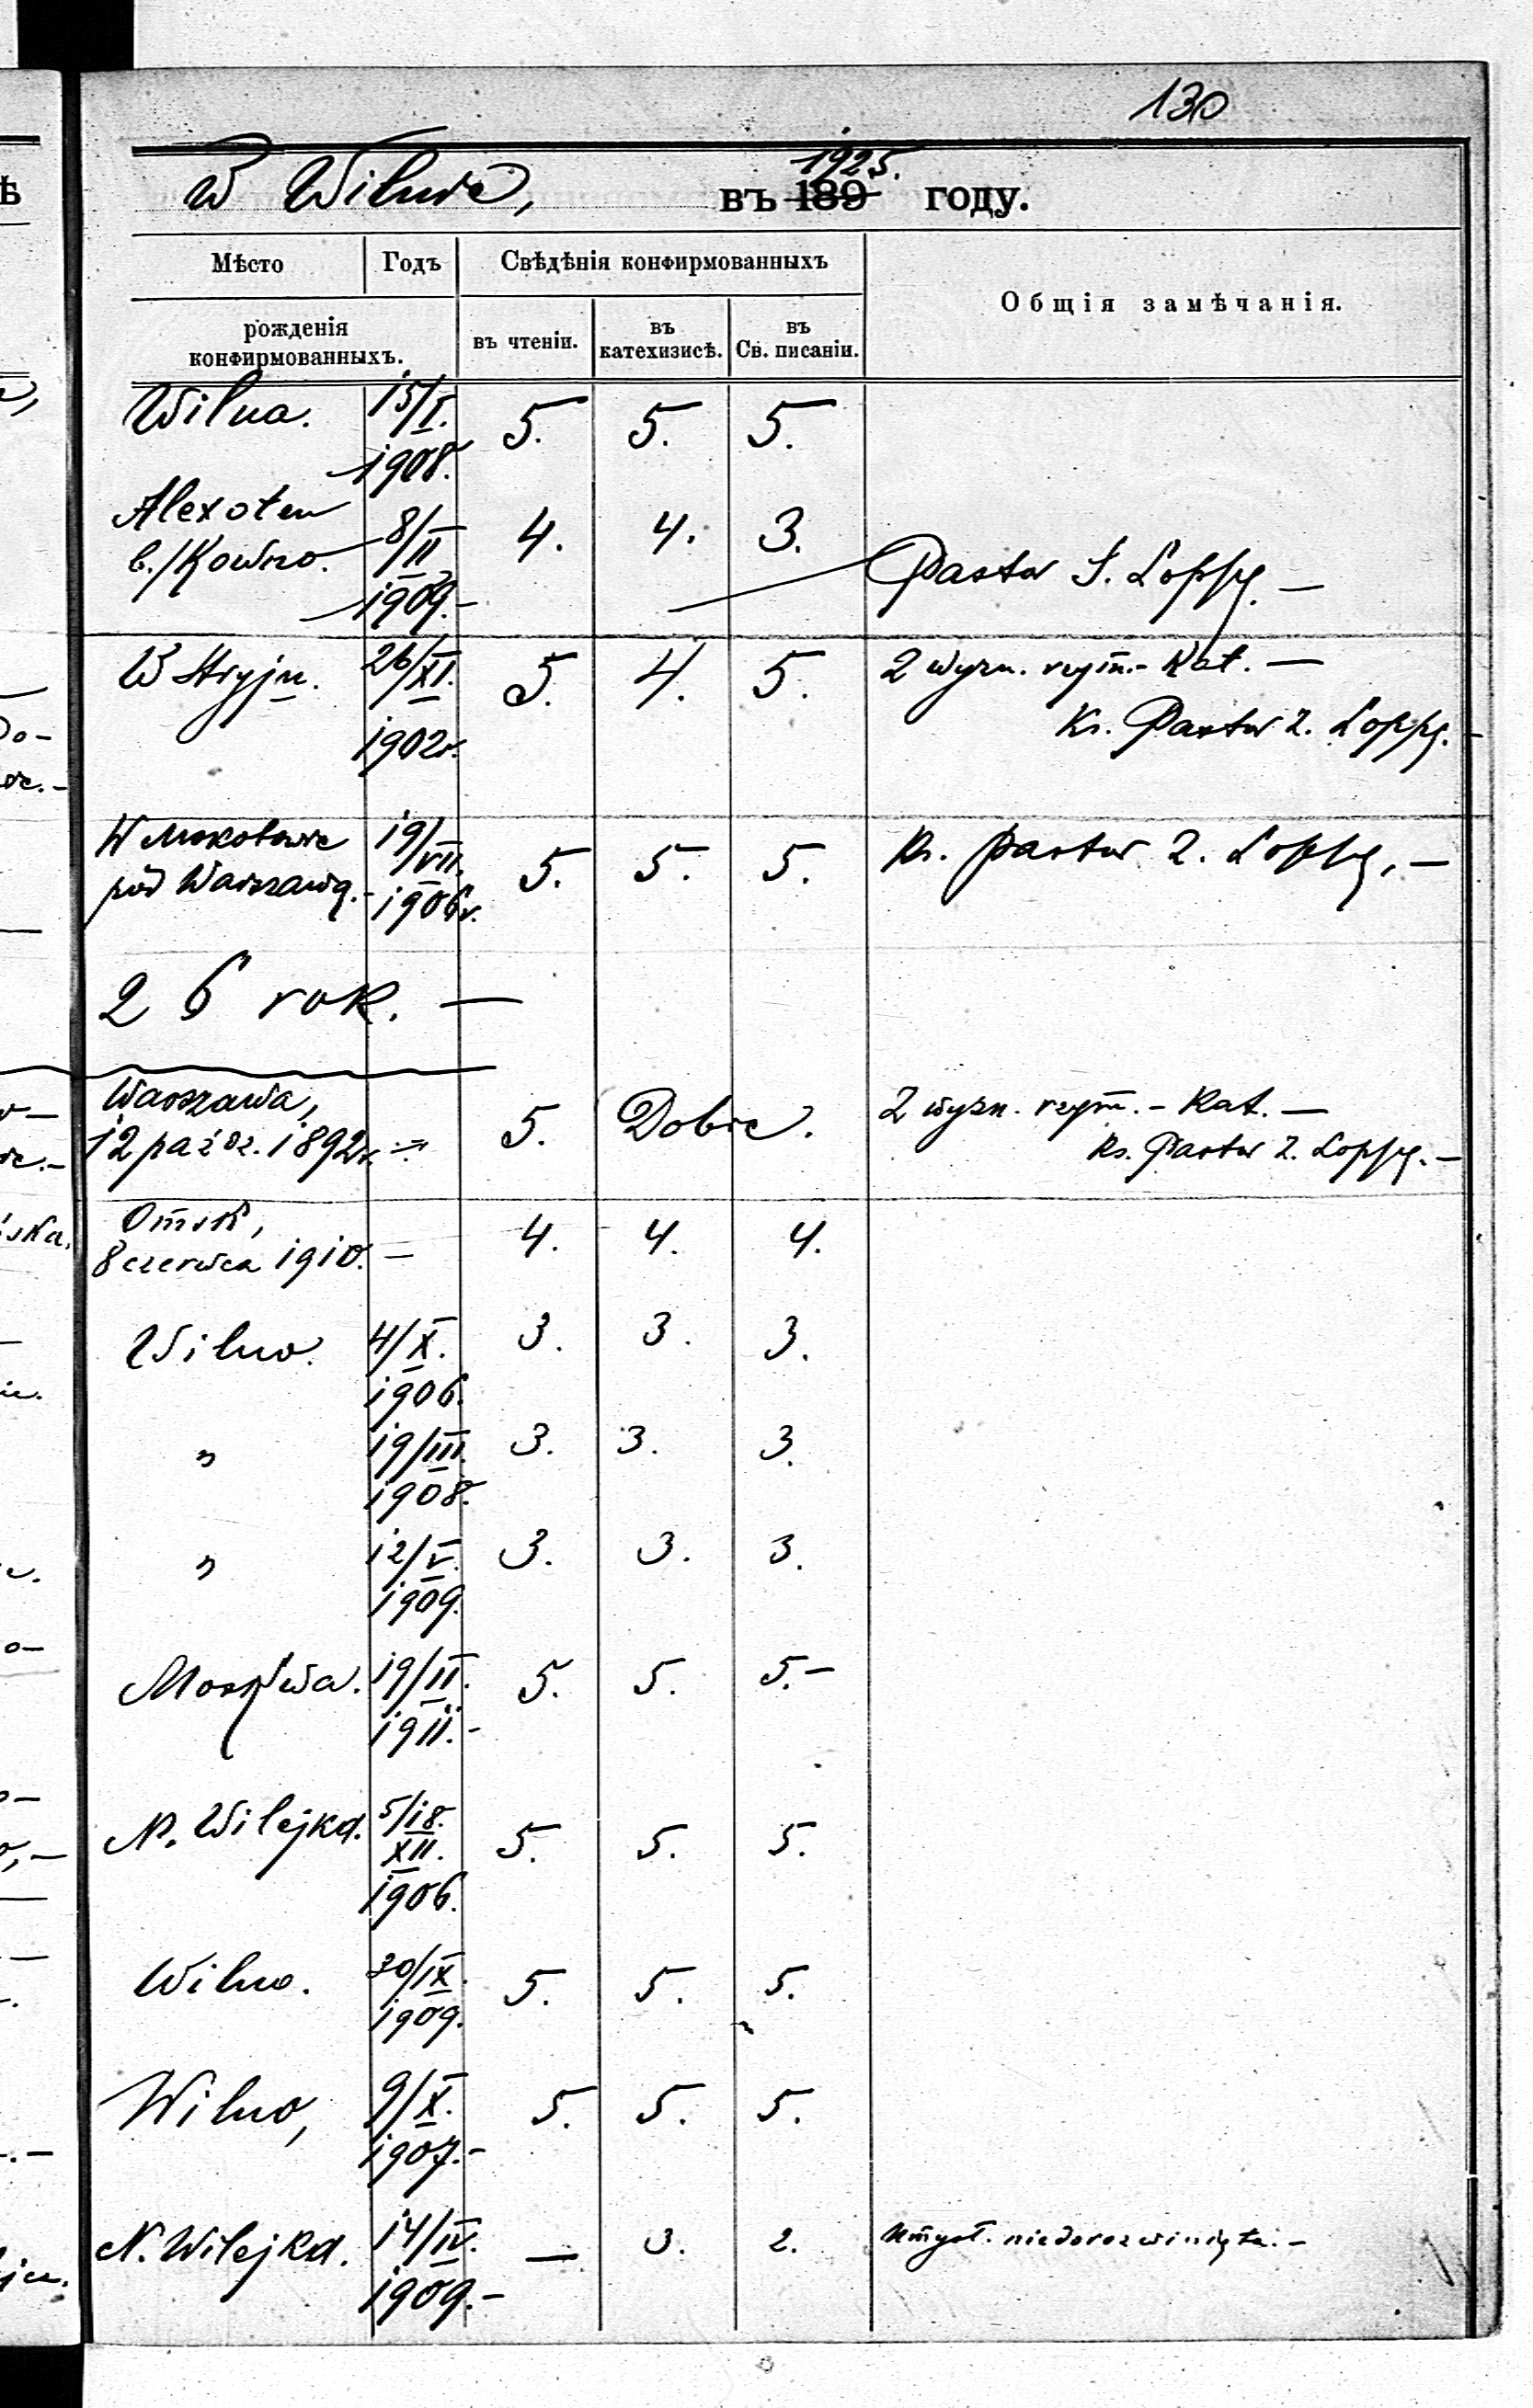 130
W Wilnie, въ 189 1925. году.
Мѣсто Годъ Свѣдѣнія конфирмованныхъ
Общія замѣчанія.
рожденія
конфирмованныхъ.
въ чтеніи. въ катехизисѣ. въ Св. писаніи.
Wilna. 15/I. 1908. 5. 5. 5.
Alexoten
b./Kowno. 8/II 1909.- 4. 4. 3.
Pastor S. Loppe. —
W Stryju. 26/XI. 1902r. 5. 4. 5. Z wyzn. rzym.- Kat. —
Ks. Pastor Z. Loppe. -
W Mokotowie
pod Warszawą.- 19/VII. 1906r. 5. 5. 5. Ks. Pastor Z. Loppe, —
26 rok. —
Warszawa,
12 paźdz. 1892r. 5. Dobre. Z wyzn. rzym. - Kat. —
Ks. Pastor Z. Loppe. —
Omsk,
8 czerwca 1910. — 4. 4. 4.
Wilno. 4/X. 1906. 3. 3. 3.
„ 19/III. 1908. 3. 3. 3.
„ 12/V. 1909. 3. 3. 3.
Moskwa. 19/II. 1911.- 5. 5. 5.-
N. Wilejka. 5/18. XII. 1906. 5. 5. 5.
Wilno. 30/IX. 1909. 5. 5. 5.
Wilno, 9/X. 1907.- 5. 5. 5.
N. Wilejka. 14/IV. 1909.- — 3. 2. Umysł. niedorozwinięta. -